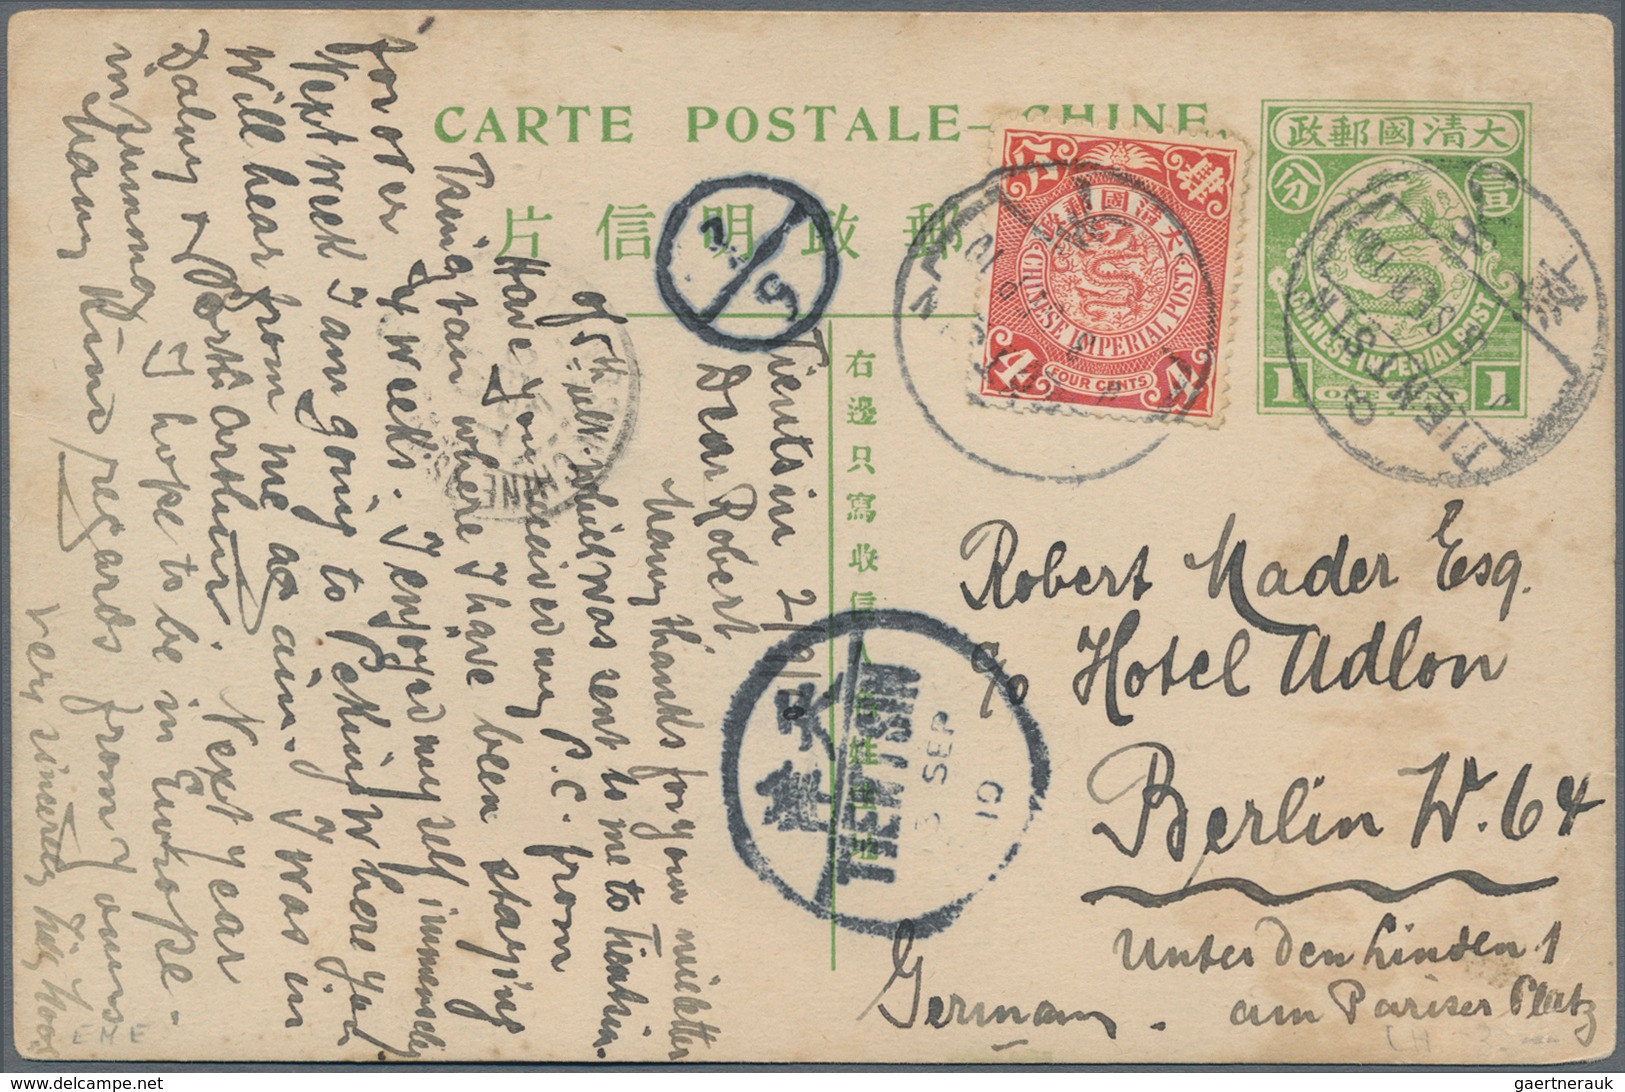 CARTE POSTALE—CHINE.
片信明政郵
右邊只寫收信人名姓住址
大清國郵政
壹
分
CHINESE IMPERIAL POST
1 ONE CENT 1
大清國郵政
肆
分
CHINESE IMPERIAL POST
4 FOUR CENTS 4
TIENTSIN
SEP 10
天津
TIENTSIN
SEP
10
Robert Mader Esq.
c/o Hotel Adlon
Berlin W. 64
Unter den Linden 1
am Pariser Platz
Germany.
Tientsin 2/9/10
Dear Robert
Many thanks for your nice letter
of 5th ult. which was sent to me to Tientsin.
Have you received my P.C. from
Tsingtau where I have been staying
for over 4 weeks. I enjoyed myself immensely
Next week I am going to Peking where you
will hear from me again. I was in
Dalny & Port Arthur. Next year
in I hope to be in Europe.
Many kind regards from yours
very sincerely
ENE
CH 3.--
gaertnerauk